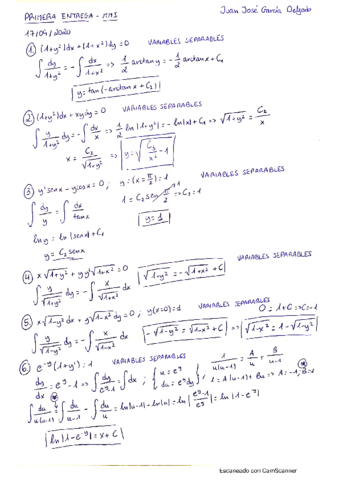 PRIMERA ENTREGA - MMI
Juan José García Delgado
17/04/2020
① (1+y²)dx+(1+x²)dy=0 VARIABLES SEPARABLES
∫ dy/(1+y²) = -∫ dx/(1+x²) => 1/2 arctan y = -1/2 arctan x + C₁
y = tan(-arctan x + C₂)
2) (1+y²)dx + xydy = 0 VARIABLES SEPARABLES
∫ y/(1+y²) dy = -∫ dx/x => 1/2 ln|1+y²| = -ln|x| + C₁ => √1+y² = C₂/x
x = C₂/√1+y² => y = √(C₂/x² - 1)
③ y' sen x - y cos x = 0; y=(x=π/2)=1 VARIABLES SEPARABLES
∫ dy/y = ∫ dx/tan x 1 = C₂ sen π/2 => C₂ = 1
ln y = ln|sen x| + C₁
y = C₂ sen x y = 1
④ x√1+y² + yy'√1+x² = 0 VARIABLES SEPARABLES
∫ y/√1+y² dy = -∫ x/√1+x² dx √1+y² = -√1+x² + C
⑤ x√1-y² dx + y√1-x² dy = 0; y(x=0)=1 VARIABLES SEPARABLES
0 = 1+C => C=-1
∫ y/√1-y² dy = -∫ x/√1-x² dx -√1-y² = √1-x² + C => √1-x² = 1-√1-y²
⑥ e^-y (1+y') = 1 VARIABLES SEPARABLES 1/u(u-1) = A/u + B/u-1
dy/dx = e^y - 1 => ∫ dy/(e^y-1) = ∫ dx; { u = e^y du = e^y dy 1 = A(u-1) + Bu => A=-1, B=1
∫ du/u(u-1) = ∫ du/u-1 - ∫ du/u = ln|u-1| - ln|u| = ln|(e^y-1)/e^y| = ln|1-e^-y|
ln|1-e^-y| = x + C
Escaneado con CamScanner